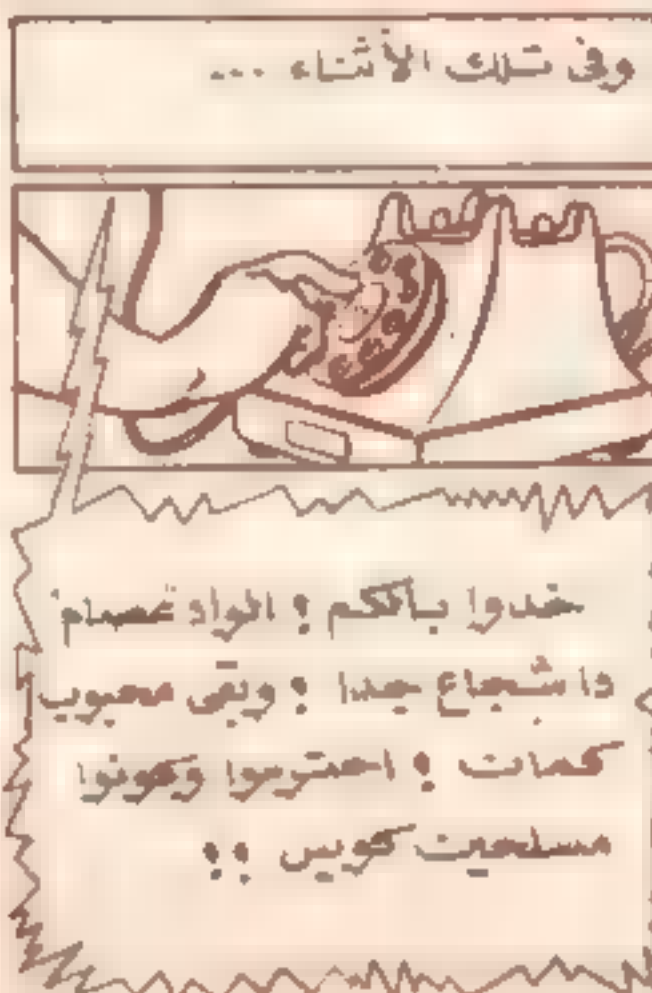 وفى تلك الأثناء ...
خدوا بالكم ! الواد عصام
دا شجاع جدا !
كمان ! احترسوا وكونوا
مسلحين كويس !!